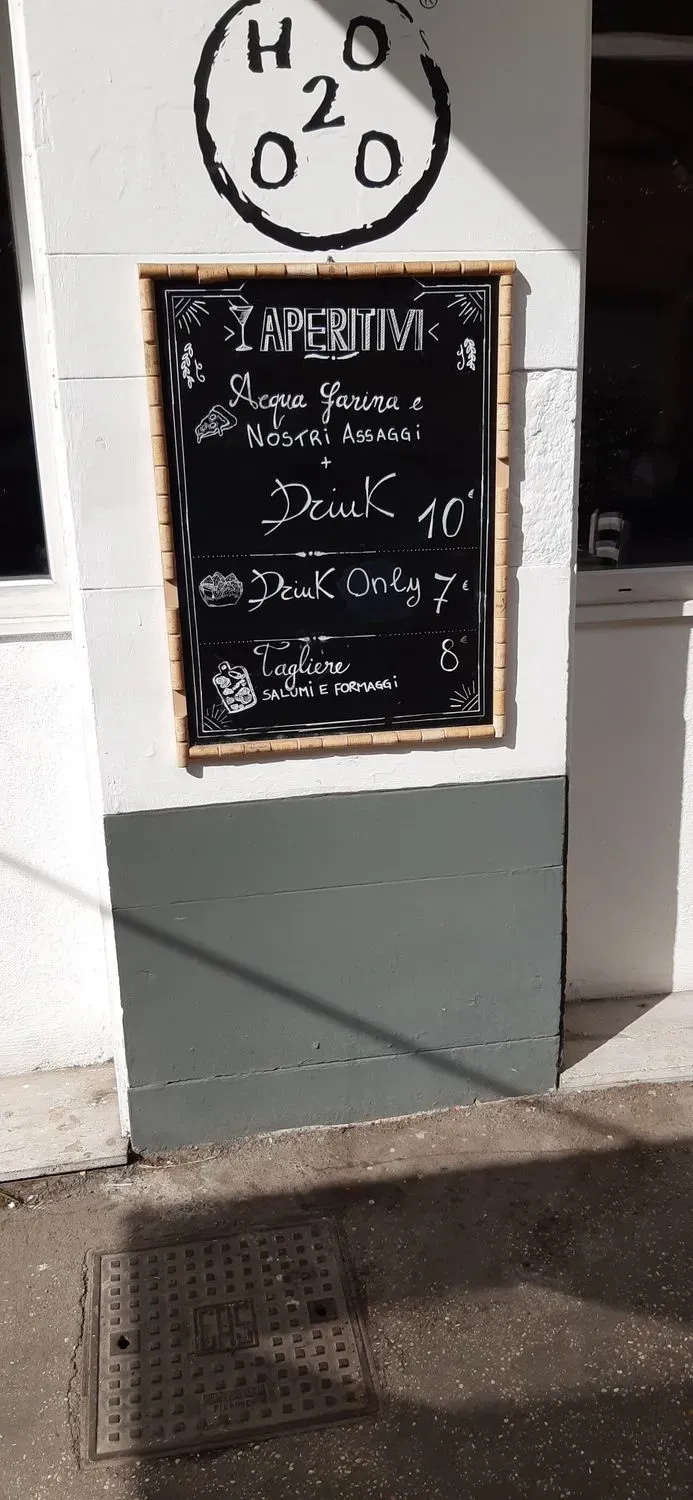 ®
H O
2
O O
APERITIVI
Acqua farina e
NOSTRI ASSAGGI
+
Drink 10 €
Drink Only 7 €
Tagliere 8 €
SALUMI E FORMAGGI
GAS